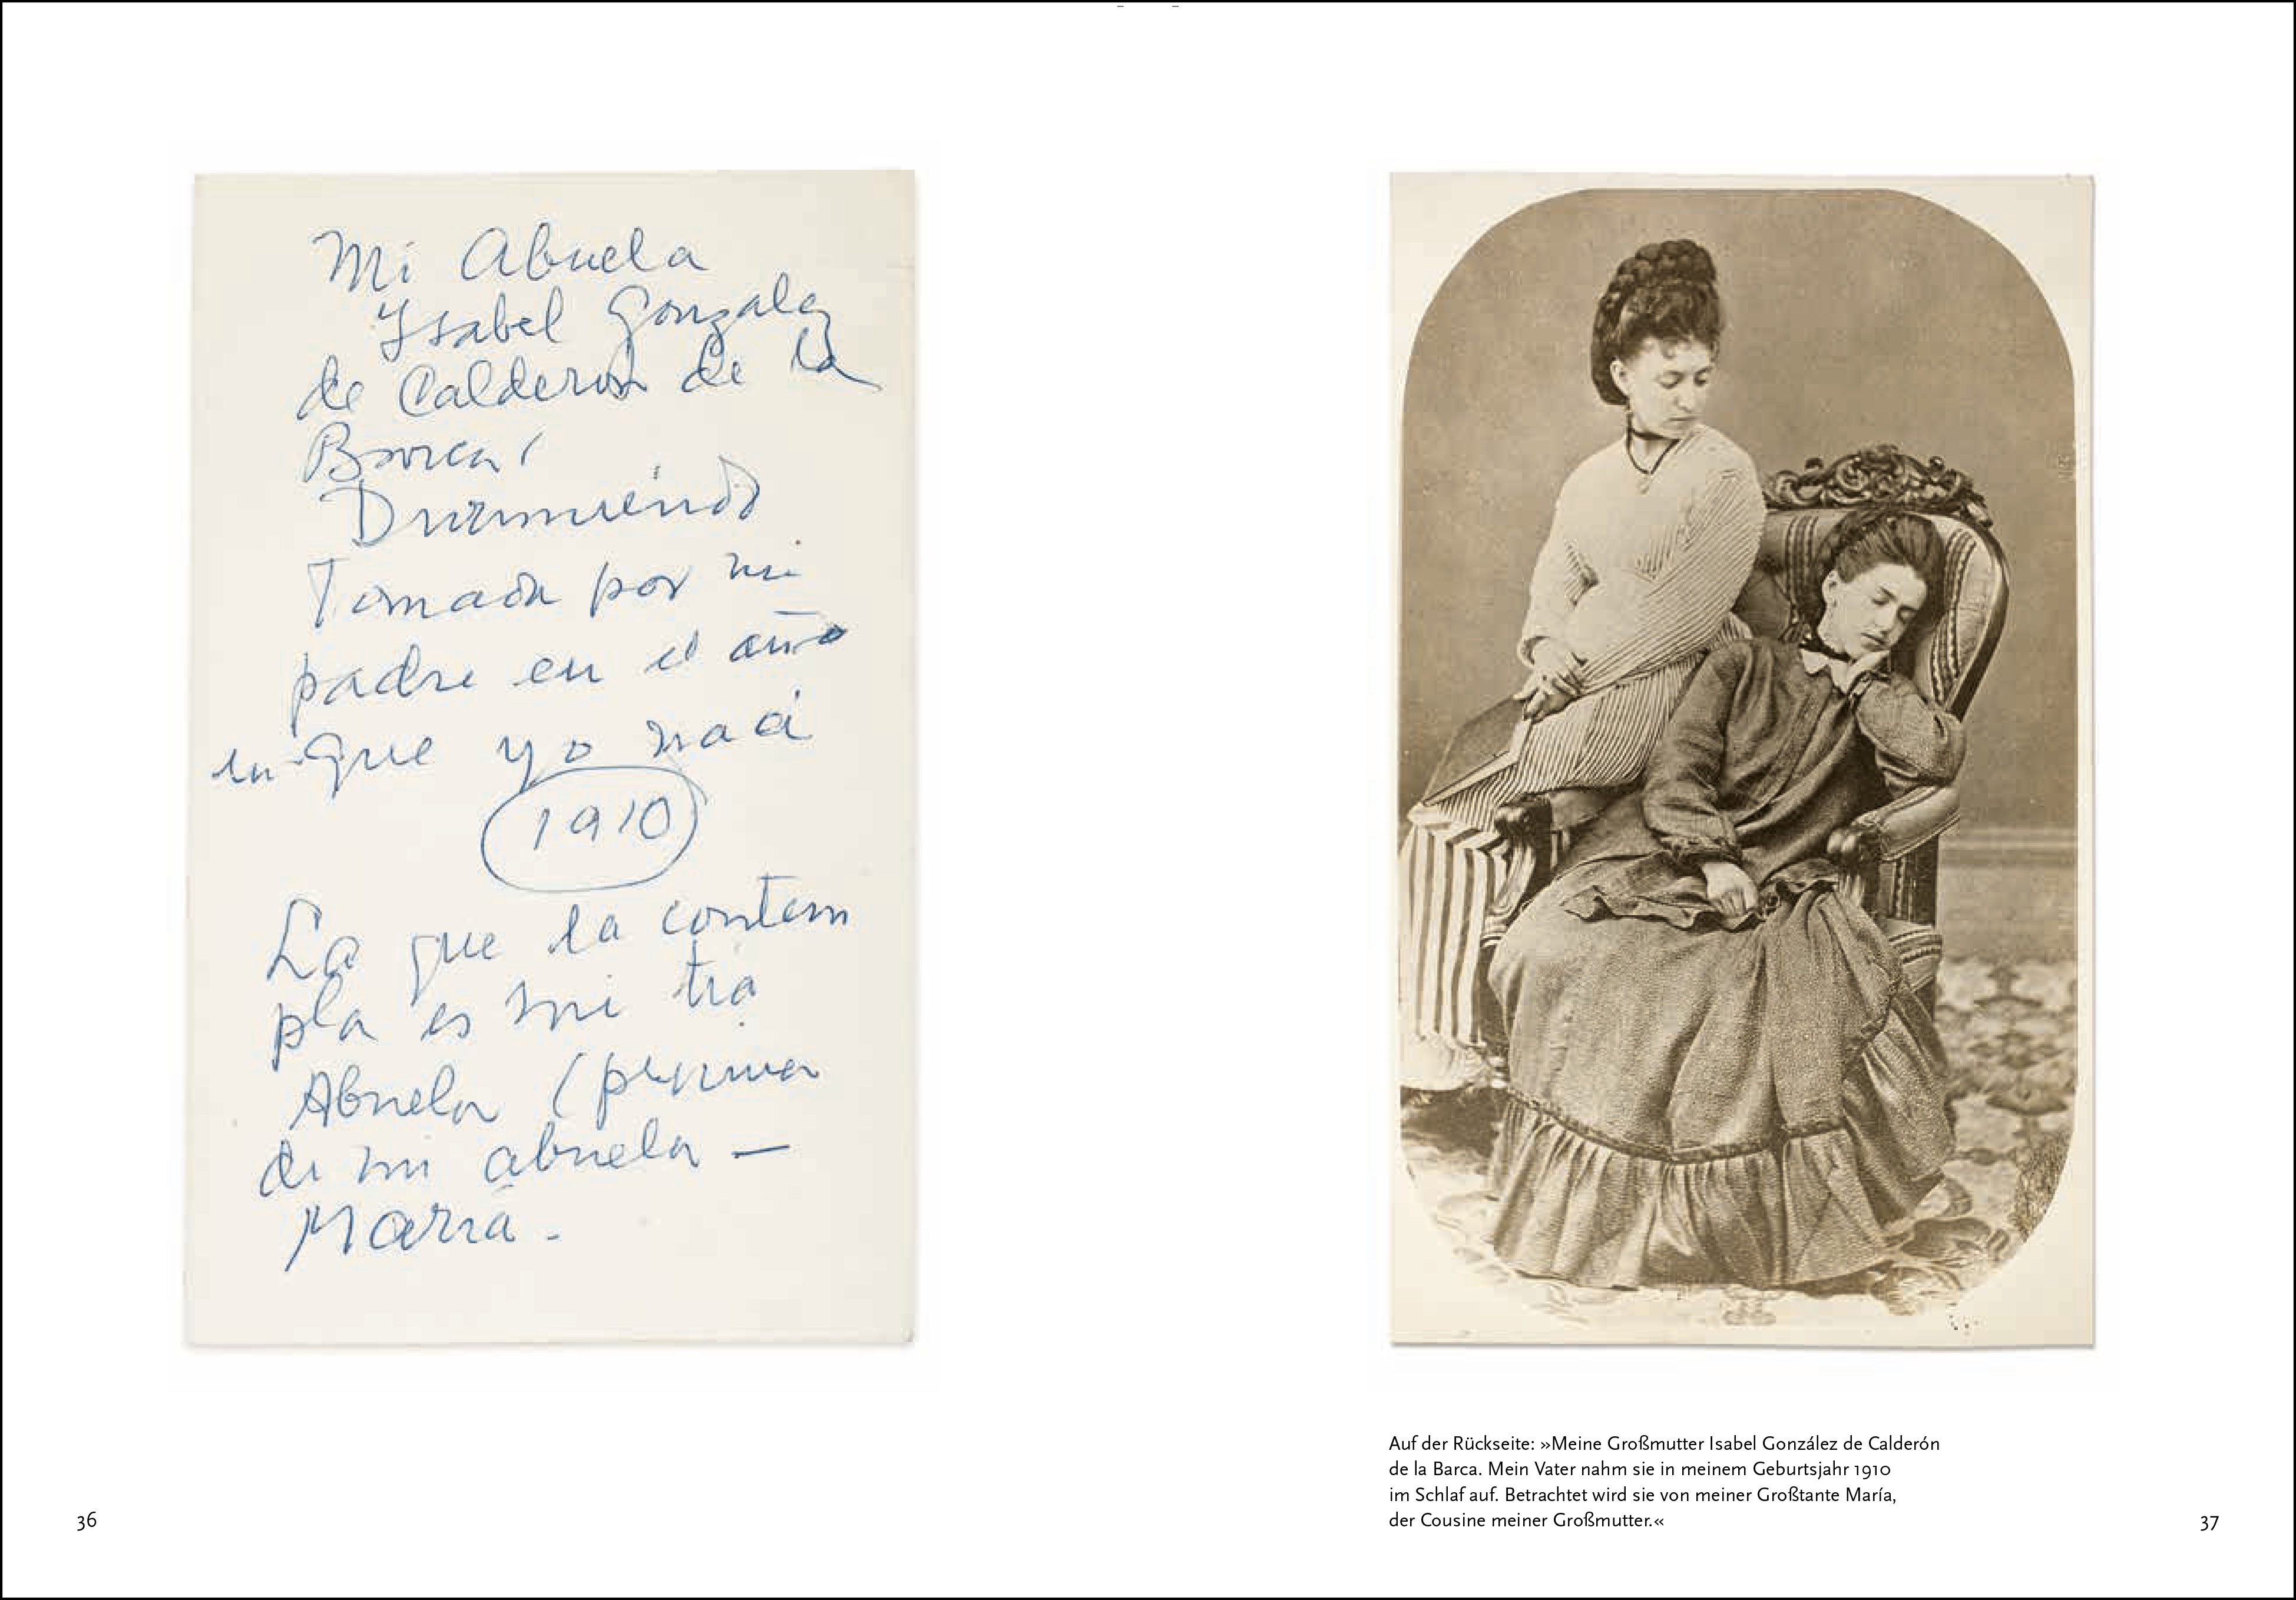 Mi Abuela
Ysabel Gonzalez
de Calderon de la
Barca,
Durmiendo
Tomada por mi
padre en el año
en que yo nací
1910
La que la contem
pla es mi tia
Abuela (prima
de mi abuela —
María -
36
Auf der Rückseite: »Meine Großmutter Isabel González de Calderón
de la Barca. Mein Vater nahm sie in meinem Geburtsjahr 1910
im Schlaf auf. Betrachtet wird sie von meiner Großtante María,
der Cousine meiner Großmutter.«
37